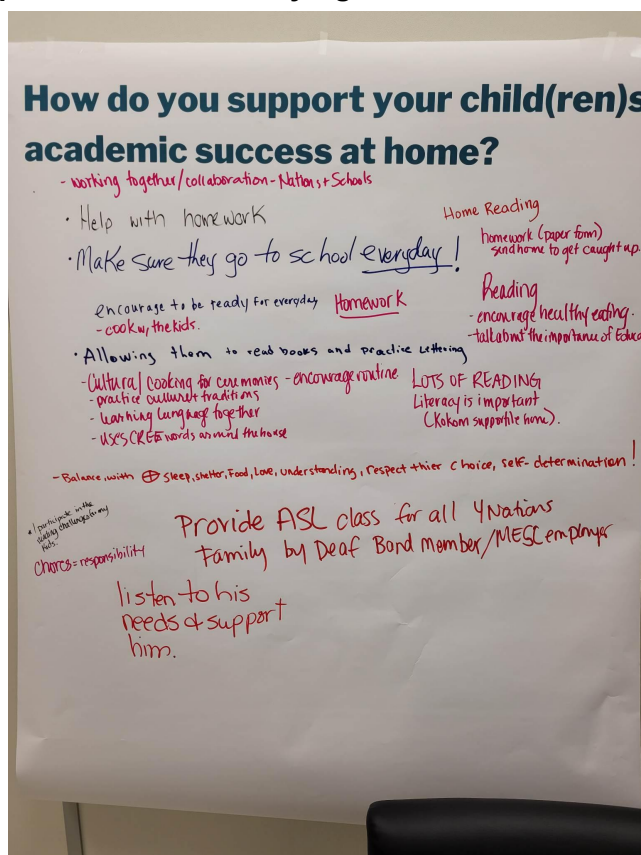 How do you support your child(ren)s
academic success at home?
- working together/collaboration - Nations + Schools
• Help with homework
Home Reading
homework (paper form)
send home to get caught up.
• Make sure they go to school everyday!
encourage to be ready for everyday
- cook w, the kids.
Homework
Reading
- encourage healthy eating.
- talk about the importance of Educa
• Allowing them to read books and practice Lettering
- Cultural cooking for ceremonies - encourage routine
- practice culture + traditions
- learning language together
- uses CREE words around the house
LOTS OF READING
Literacy is important
(Kokom support file home).
- Balance, with ⊕ sleep, shelter, Food, Love, understanding, respect thier choice, self-determination!
* I participate in the
reading challenges to my
kids.
Chores = responsibility
Provide ASL class for all 4 Nations
Family by Deaf Band member/MESC employer
listen to his
needs & support
him.